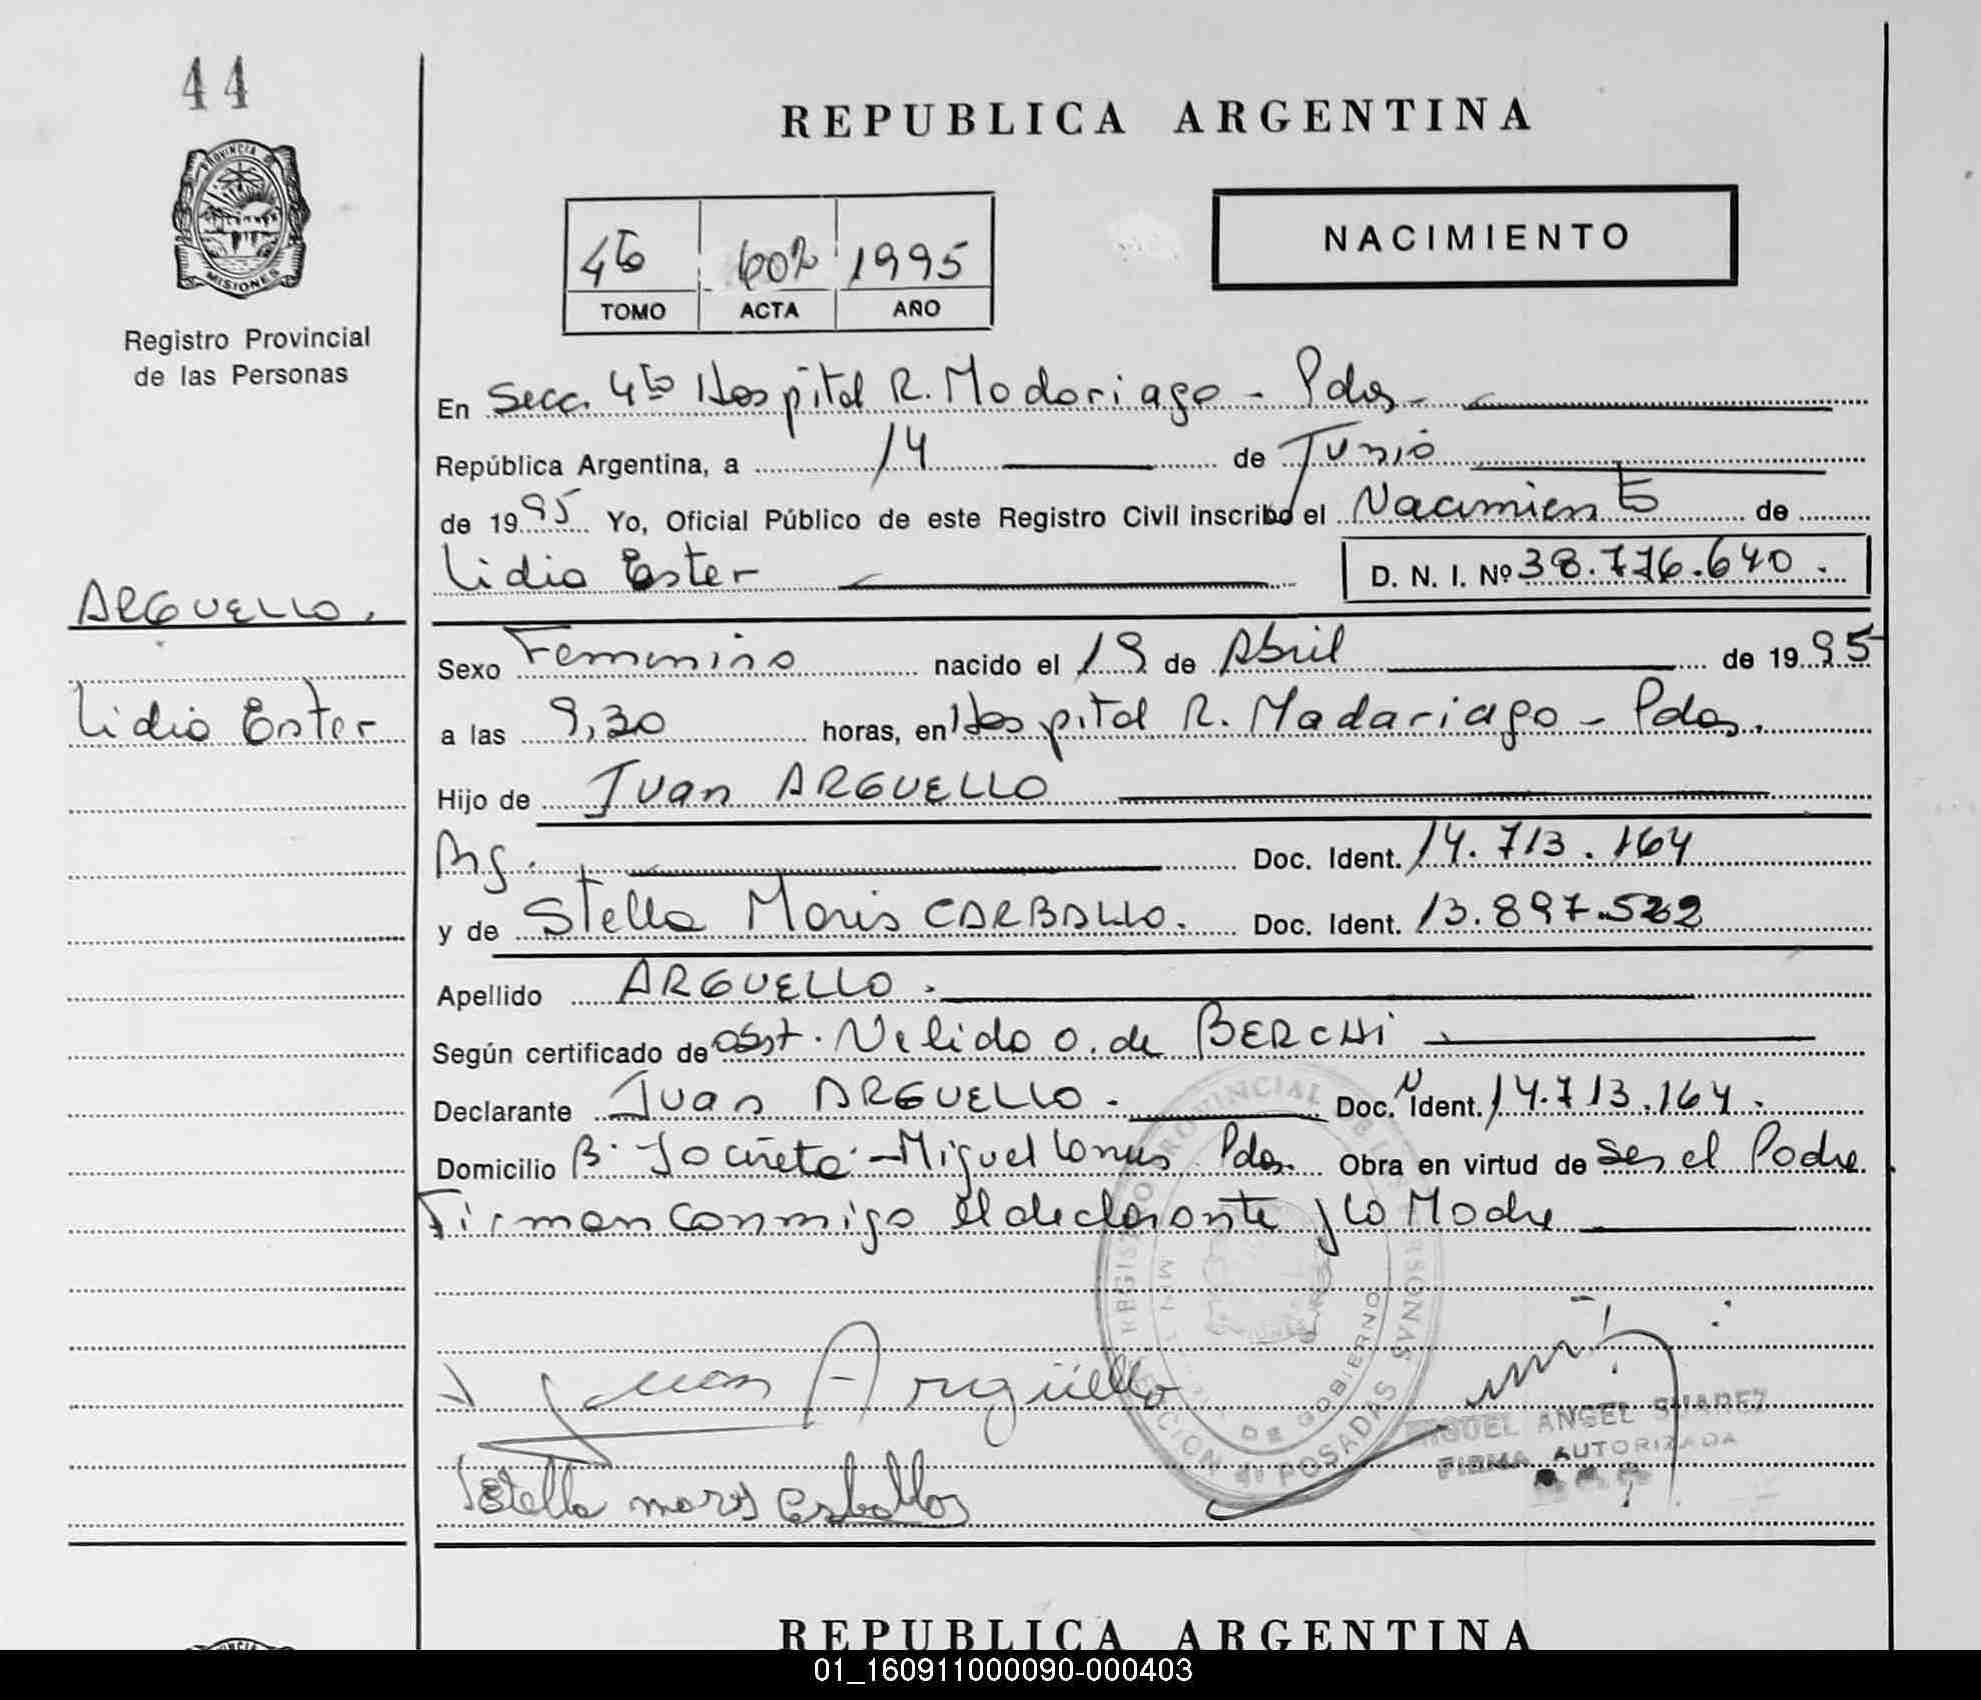 44
REPUBLICA ARGENTINA
PROVINCIA DE
MISIONES
Registro Provincial
de las Personas
NACIMIENTO
4to 602 1995
TOMO ACTA AÑO
En Secc. 4to Hospital R. Madariaga - Pdas -
República Argentina, a 14 de Junio
de 1995 Yo, Oficial Público de este Registro Civil inscribo el Nacimiento de
Lidia Ester D. N. I. Nº 38.776.640.
ARGUELLO.
Lidia Ester
Sexo Femenino nacido el 19 de Abril de 1995
a las 9,30 horas, en Hospital R. Madariaga - Pdas.
Hijo de Juan ARGUELLO
Arg. Doc. Ident. 14.713.164
y de Stella Maris CARBALLO. Doc. Ident. 13.897.522
Apellido ARGUELLO.
Según certificado de obst. Nelida O. de BERCHI
Declarante Juan ARGUELLO. Doc. Ident. 14.713.164.
Domicilio Bº Yacireta - Miguel Lanus Pdas. Obra en virtud de ser el Padre
Firman conmigo el declarante y la Madre
REGISTRO PROVINCIAL DE LAS PERSONAS
DE GOBIERNO
POSADAS
Juan Argüello
Stella maris Carballo
MIGUEL ANGEL SUAREZ
FIRMA AUTORIZADA
REPUBLICA ARGENTINA
01_160911000090-000403